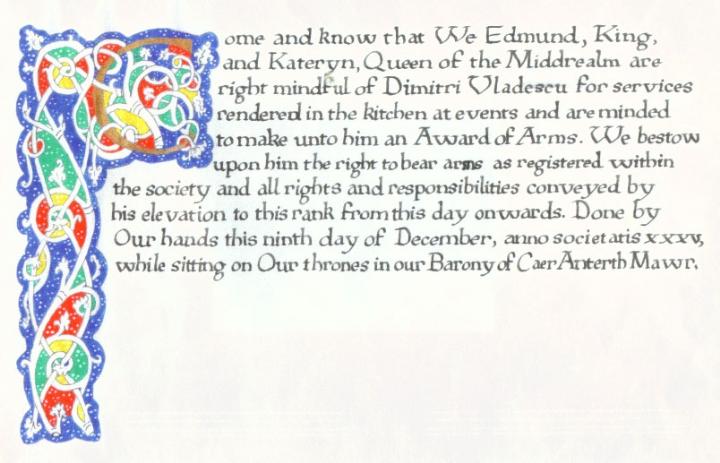 Come and know that We Edmund, King,
and Kateryn, Queen of the Middrealm are
right mindful of Dimitri Vladescu for services
rendered in the kitchen at events and are minded
to make unto him an Award of Arms. We bestow
upon him the right to bear arms as registered within
the society and all rights and responsibilities conveyed by
his elevation to this rank from this day onwards. Done by
Our hands this ninth day of December, anno societatis xxxv,
while sitting on Our thrones in our Barony of Caer Anterth Mawr.